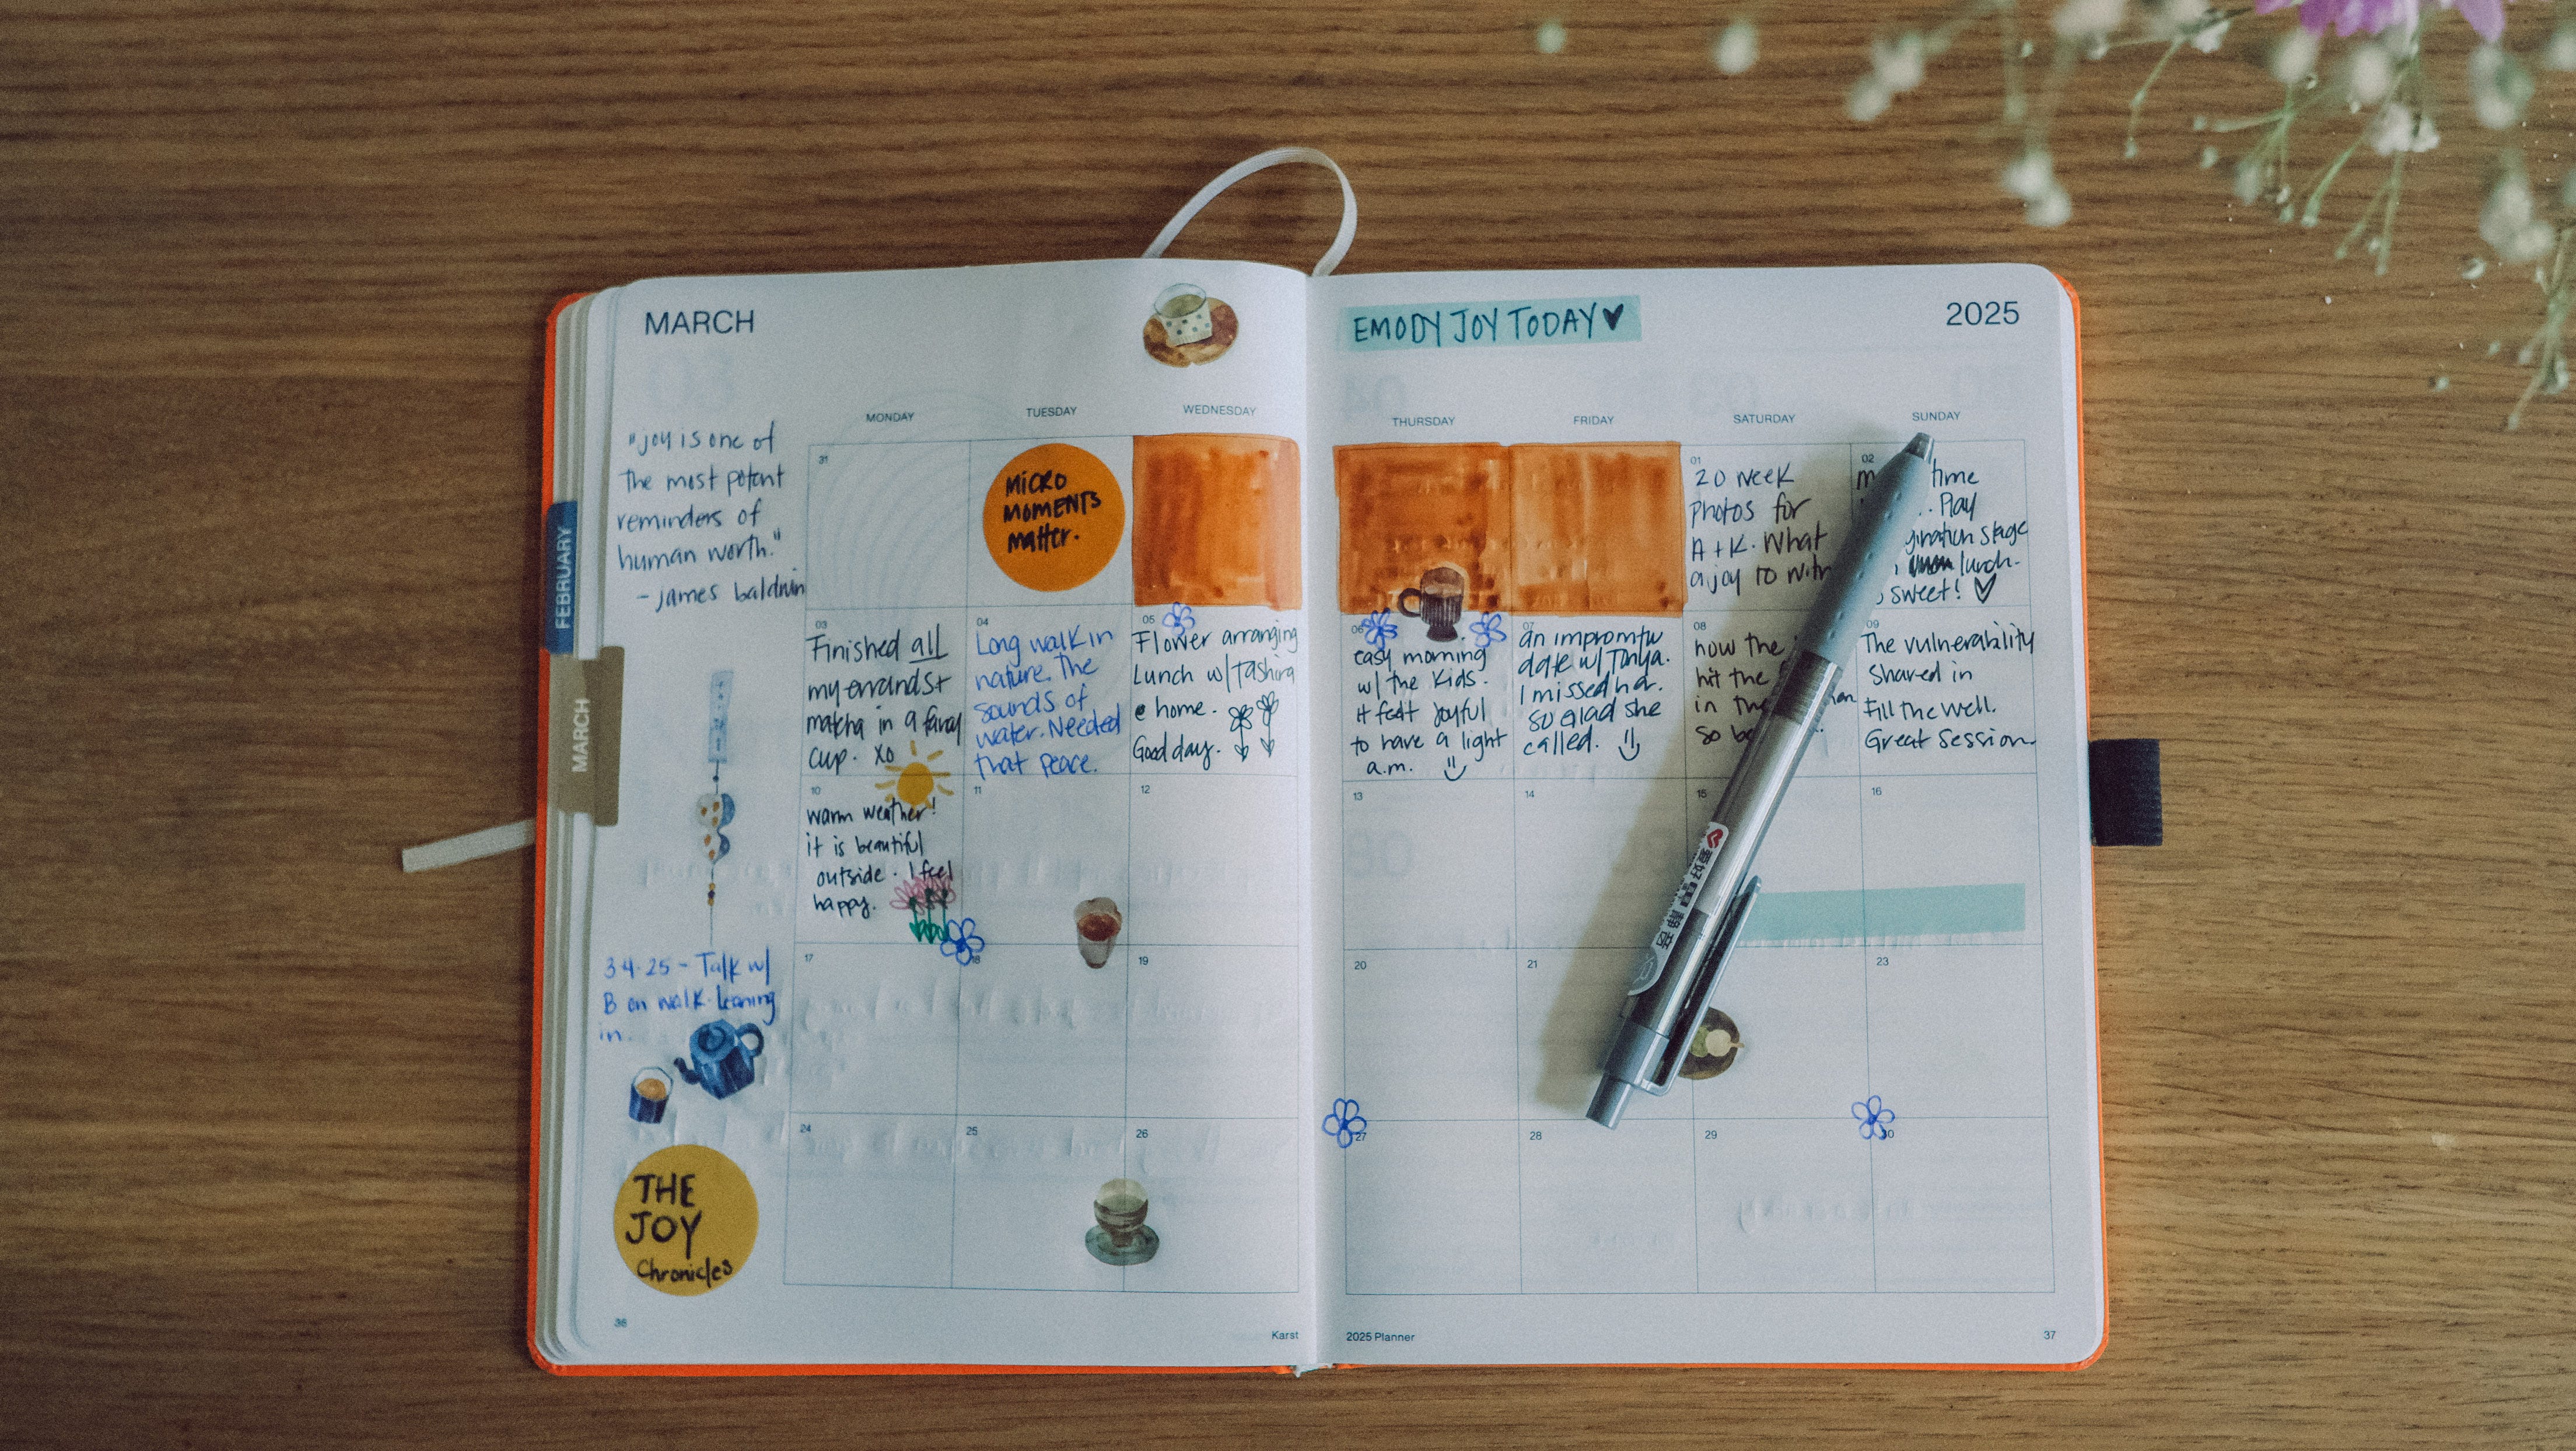 MARCH
EMODY JOY TODAY
2025
MONDAY
TUESDAY
WEDNESDAY
THURSDAY
FRIDAY
SATURDAY
SUNDAY
"joy is one of
the most potent
reminders of
human worth."
- james baldwin
FEBRUARY
MARCH
31
MICRO
MOMENTS
matter.
01
20 week
photos for
A + K. What
a joy to
02
time
Play
stage
lunch.
sweet!
03
Finished all
my errands +
matcha in a fancy
cup. xo
04
Long walk in
nature. The
sounds of
water. Needed
that peace.
05
Flower arranging
Lunch w/ Tashira
@ home.
Good day.
06
easy morning
w/ the kids.
it felt joyful
to have a light
a.m.
07
an impromtu
date w/ Tanya.
I missed her.
so glad she
called.
08
how the
hit the
in the
so
09
The vulnerability
Shared in
Fill the Well.
Great Session.
10
warm weather!
it is beautiful
outside. I feel
happy.
11
12
13
14
15
16
3.4.25 - Talk w/
B on walk. Leaning
in.
17
18
19
20
21
23
24
25
26
27
28
29
THE
JOY
Chronicles
36
Karst
2025 Planner
37